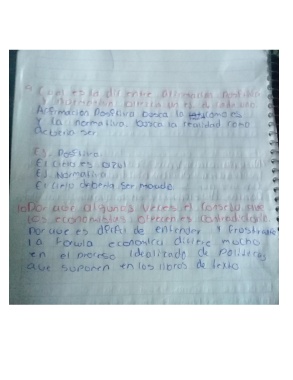 Cual es la dif entre afirmacion positiva
y normativa
Afirmacion Positiva busca la como es
y la normativa busca la realidad como
deberia ser.
Ej. Positiva
El cielo es azul
Ej Normativa
El cielo deberia ser morado
10 Por que algunas veces el consejo que
los economistas ofrecen es contradictorio
Por que es dificil de entender y frustrante
la economica difiere mucho
en el proceso idealizado de politicas
que suponen en los libros de texto